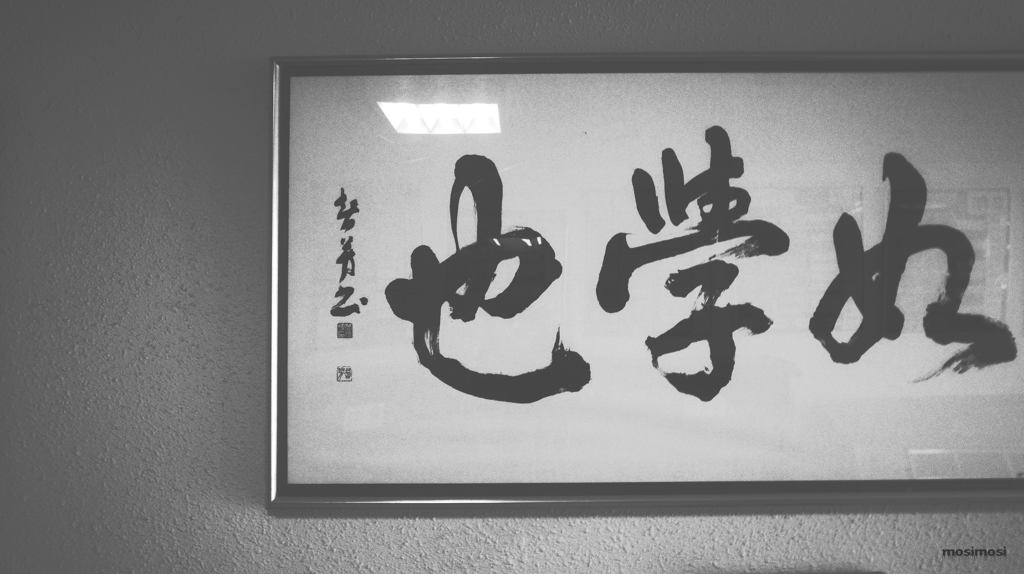 如學也
mosimosi